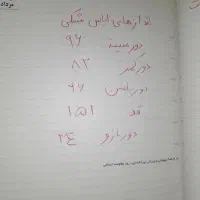 مرداد
اندازهای لباس مشکی
دور سینه ۹۶
دور کمر ۸۲
دور باسن ۶۷
قد ۱۵۱
دور بازو ۲۴